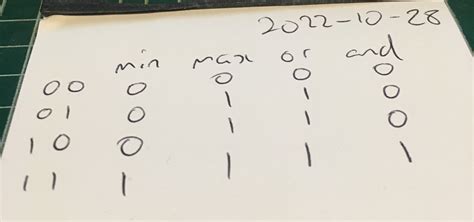 2022-10-28
min max or and
00 0 0 0 0
01 0 1 1 0
10 0 1 1 0
11 1 1 1 1